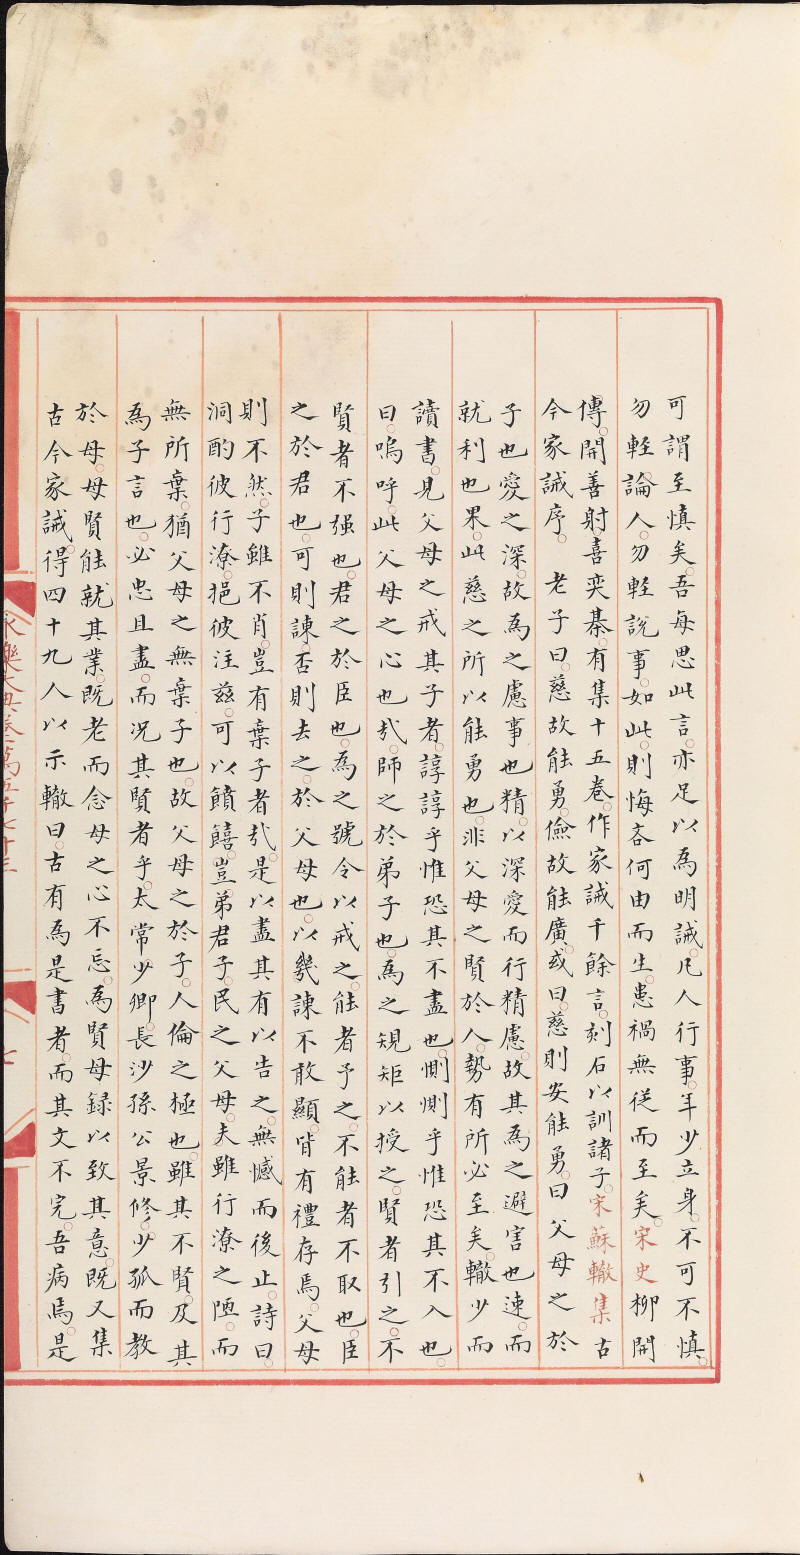 可謂至慎矣。吾每思此言。亦足以為明誡。凡人行事。年少立身。不可不慎。
勿輕論人。勿輕說事。如此。則悔吝何由而生。患禍無從而至矣。宋史柳開
傳。開善射。喜奕棊。有集十五卷。作家誡千餘言。刻石以訓諸子。宋蘇轍集古
今家誡序。 老子曰。慈故能勇。儉故能廣。或曰。慈則安能勇。曰父母之於
子也。愛之深。故為之慮事也精。以深愛而行精慮。故其為之避害也速。而
就利也果。此慈之所以能勇也。非父母之賢於人。勢有所必至矣。轍少而
讀書。見父母之戒其子者。諄諄乎惟恐其不盡也。惻惻乎惟恐其不入也。
曰。嗚呼。此父母之心也㢤。師之於弟子也。為之規矩以授之。賢者引之。不
賢者不强也。君之於臣也。為之號令以戒之。能者予之。不能者不取也。臣
之於君也。可則諫。否則去之。於父母也。以幾諫不敢顯。皆有禮存焉。父母
則不然。子雖不肖。豈有棄子者㢤。是以盡其有以告之。無憾而後止。詩曰。
泂酌彼行潦。挹彼注兹。可以饙饎。豈弟君子。民之父母。夫雖行潦之陋。而
無所棄。猶父母之無棄子也。故父母之於子。人倫之極也。雖其不賢。及其
為子言也。必忠且盡。而況其賢者乎。太常少卿。長沙孫公景修。少孤而教
於母。母賢能就其業。既老而念母之心不忘。為賢母録以致其意。既又集
古今家誡。得四十九人以示轍曰。古有為是書者。而其文不完。吾病焉。是
永樂大典卷一萬五千七十三
七